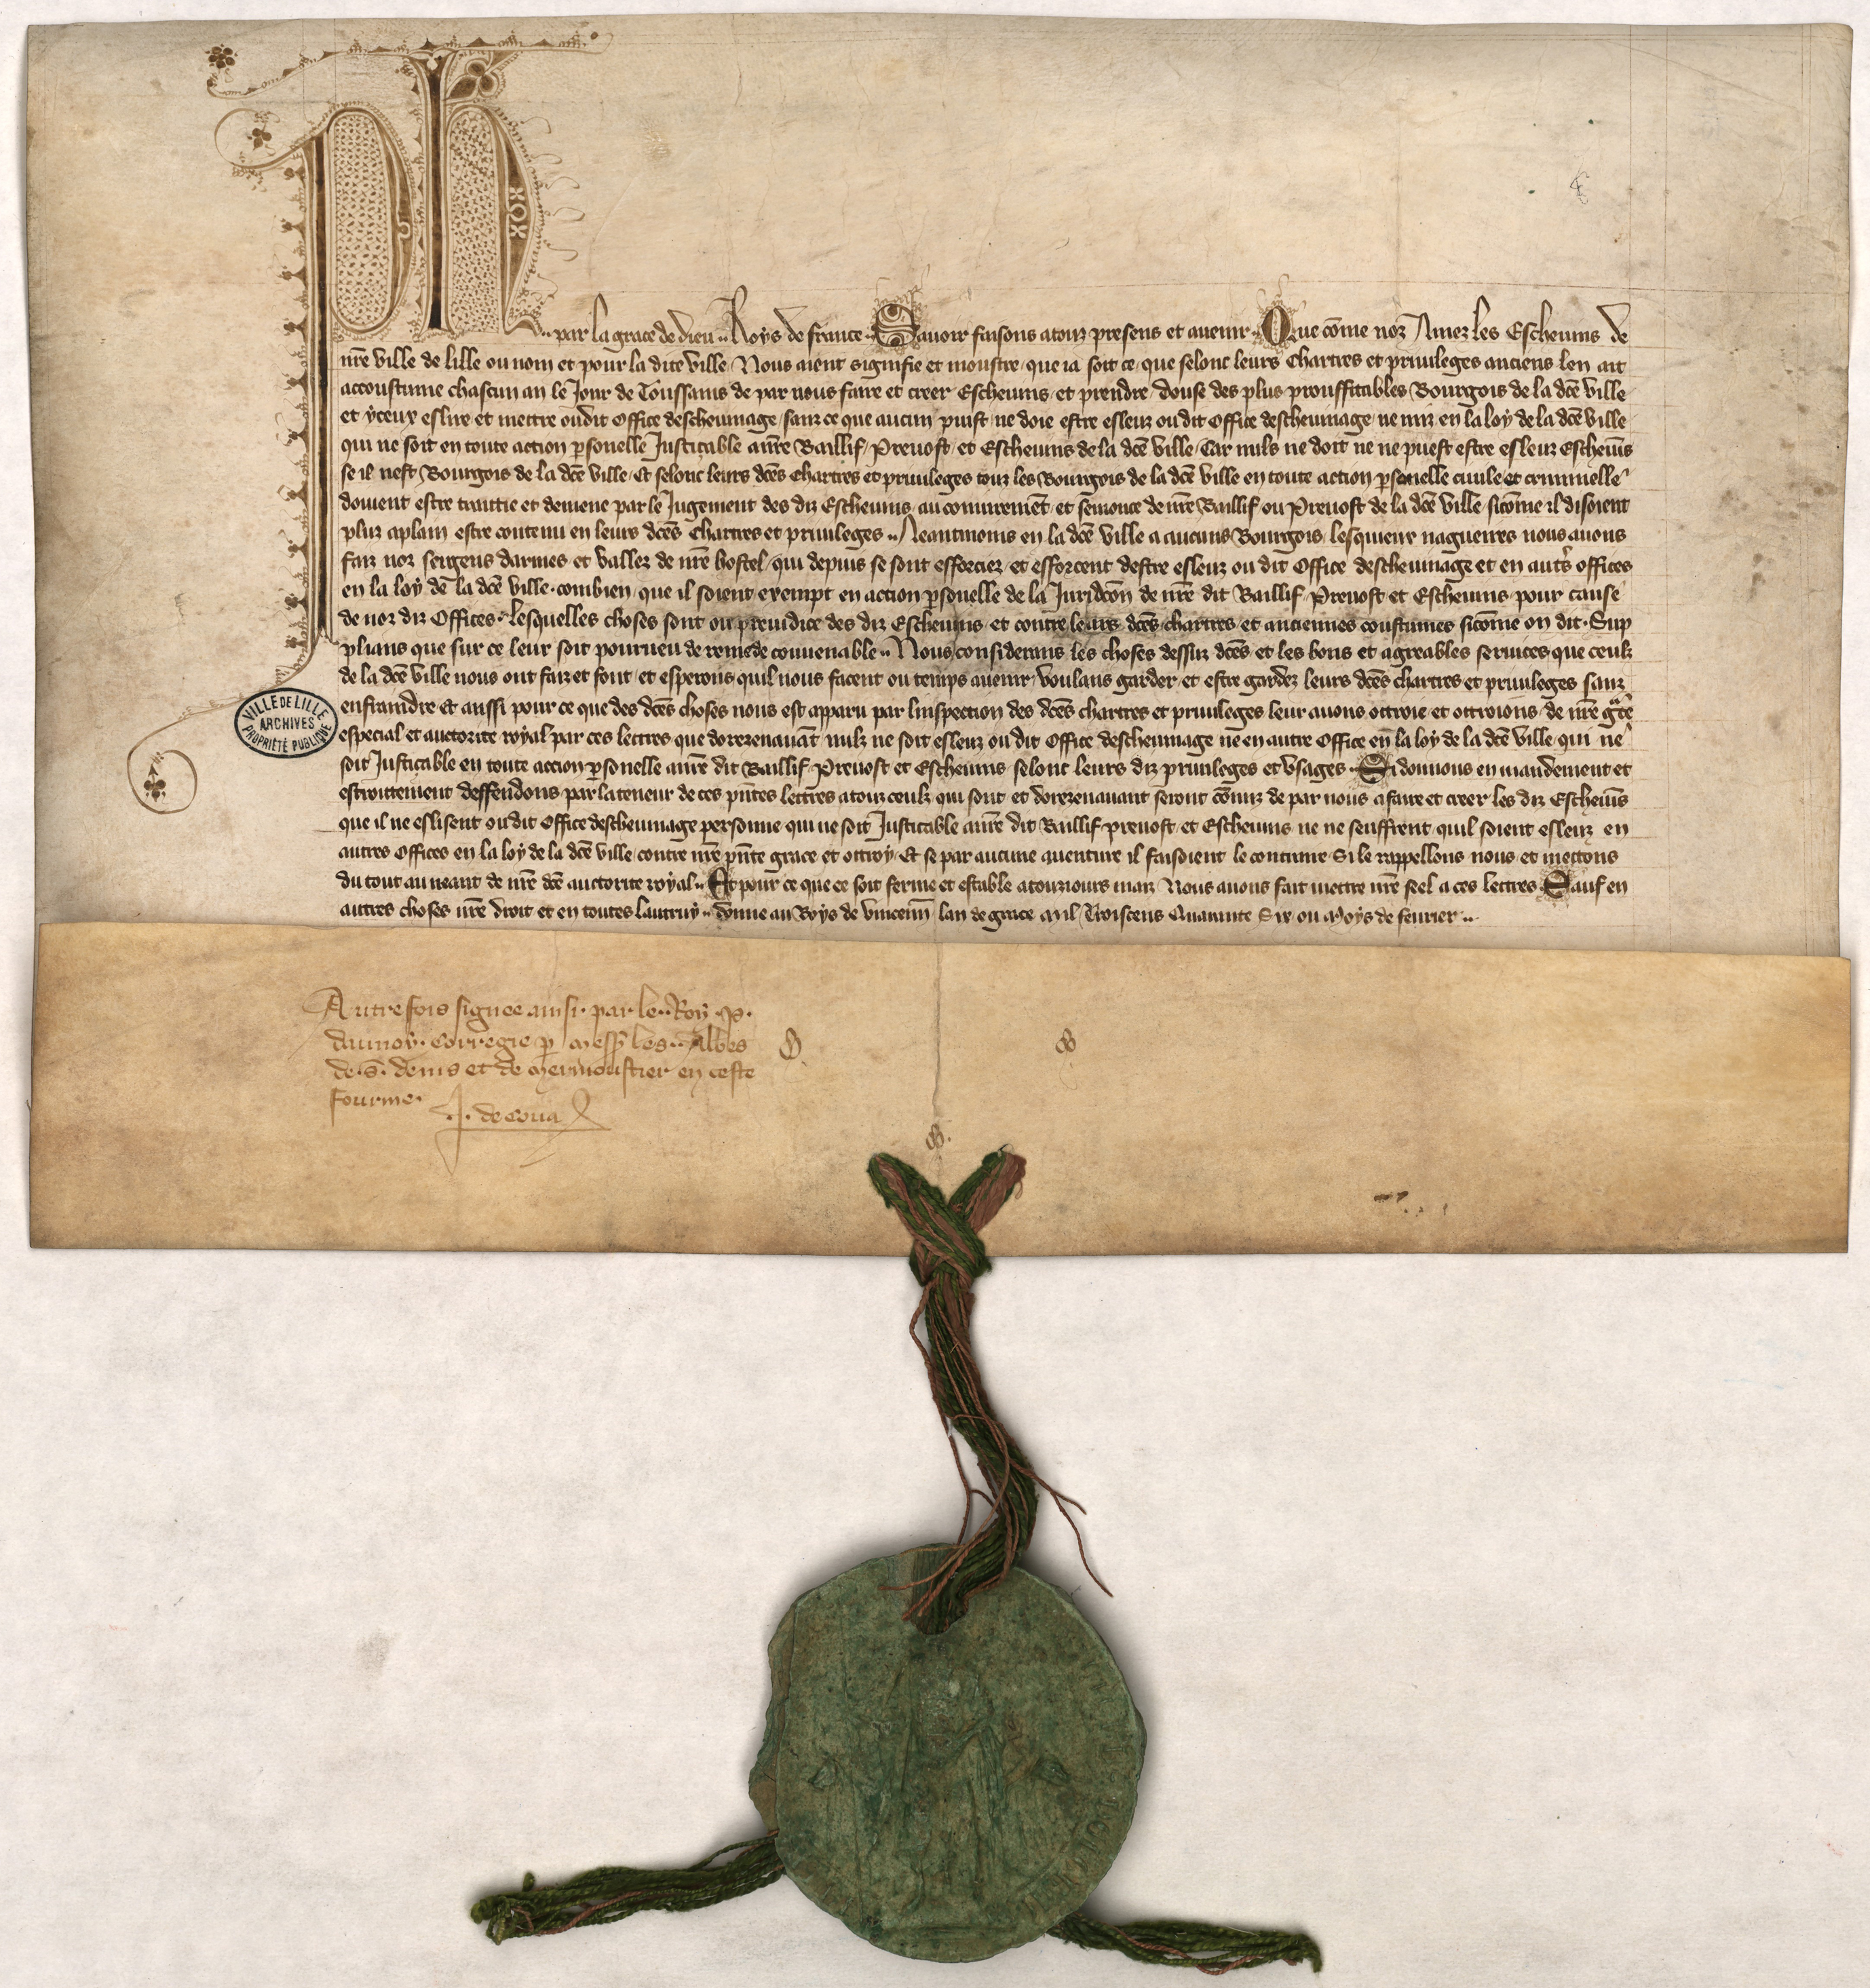 Ph par la grace de dieu Roys de france Savoir faisons a touz presens et avenir Que cōme noz Amez les Eschevins de
nrē ville de lille ou nom et pour la dite ville Nous aient signifie et monstre que ia soit ce que selonc leurs Chartres et privileges anciens len ait
accoustume chascun an le Jour de Toussains de par nous faire et creer Eschevins et prendre douse des plus prouffitables Bourgois de la dcē ville
et yceux eslire et mettre oudit Office deschevinage sanz ce que aucun puist ne doie estre esleuz oudit Office deschevinage ne mis en la loy de la dcē ville
qui ne soit en toute action psonelle Justicable a nrē Baillif Prevost et Eschevins de la dcē ville Car nuls ne doit ne ne puest estre esleuz Eschevīs
se il nest Bourgois de la dcē ville Et selonc leurs dcēs Chartres et privileges touz les Bourgois de la dcē ville en toute action psonelle civile et criminelle
doivent estre traitie et demene par le Jugement des diz Eschevins au conjuremēt et semonce de nrē Baillif ou Prevost de la dcē ville sicōme il disoient
plus aplain estre contenu en leurs dcēs Chartres et privileges Neantmoins en la dcē ville a aucuns Bourgois lesquieux nagueires nous avons
faiz noz sergens darmes et vallez de nrē hostel qui depuis se sont efforciez et efforcent destre esleuz ou dit Office deschevinage et en autrs offices
en la loy de la dcē ville combien que il soient exempt en action psonelle de la Juridcōn de nrē dit Baillif Prevost et Eschevins pour cause
de noz diz Offices lesquelles choses sont ou preiudice des diz Eschevins et contre leurs dcēs chartres et anciennes coustumes sicōme on dit Sup
plians que sur ce leur soit pourveu de remede convenable Nous considerans les choses dessuz dcēs et les bons et agreables services que ceulz
de la dcē ville nous ont faiz et font et esperons quil nous facent ou temps avenir voulans garder et estre gardez leurs dcēs chartres et privileges sanz
enfraindre Et aussi pour ce que des dcēs choses nous est apparu par linspection des dcēs chartres et privileges leur avons ottroie et ottroions de nrē grce
especial et auctorite royal par ces lettres que dorezenavāt nulz ne soit esleuz ou dit Office deschevinage ne en autre Office en la loy de la dcē ville qui ne
soit Justicable en toute accion psonelle a nrē dit Baillif Prevost et Eschevins selonc leurs diz privileges et usages Si donnons en mandement et
estroittement deffendons par la teneur de ces pntes lettres a touz ceulz qui sont et dorezenavant seront cōmis de par nous a faire et creer les diz Eschevīs
que il ne eslisent oudit Office deschevinage personne qui ne soit Justicable a nrē dit Baillif prevost et Eschevins ne ne seuffrent quil soient esleuz en
autres Offices en la loy de la dcē ville contre nrē pnte grace et ottroy Et se par aucune aventure il faisoient le contraire Si le rappellons nous et mettons
du tout au neant de nrē dcē auctorite royal Et pour ce que ce soit ferme et estable a touziours maiz Nous avons fait mettre nrē seel a ces lettres Sauf en
autres choses nrē droit et en toutes lautruy Donne au Boys de vincenn lan de grace mil Troiscens Quarante Six ou Moys de fevrier
Autrefois signee ainsi par le Roy P.
daunoy corregie p messrs les Abbes
de S. denis et de mermoustier en ceste
fourme
J. de Cova
VILLE DE LILLE
ARCHIVES
PROPRIÉTÉ PUBLIQUE